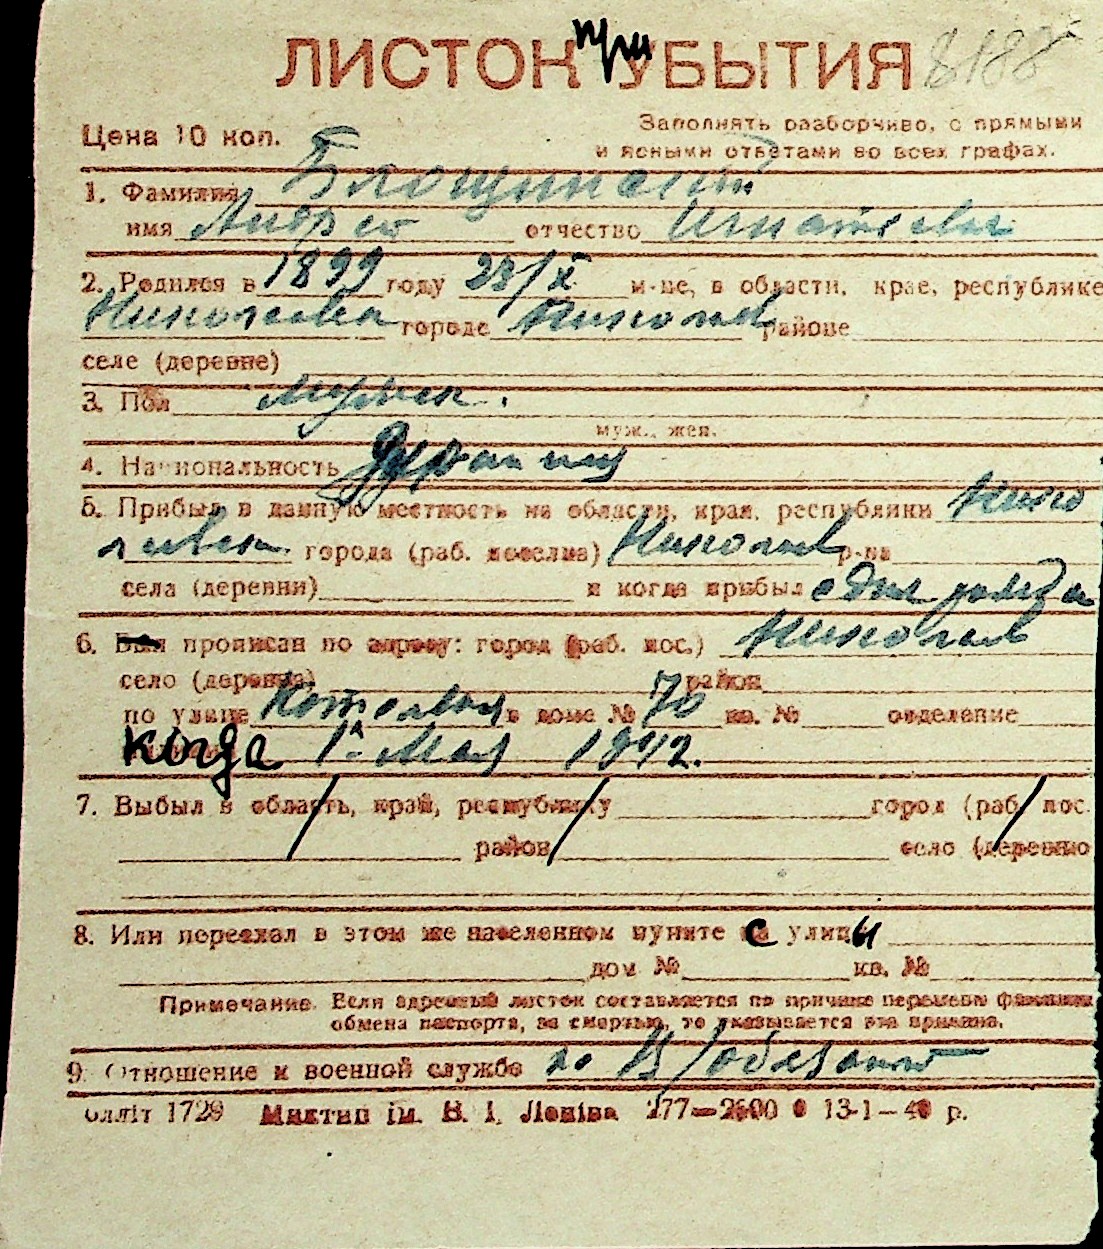 ЛИСТОК при УБЫТИЯ 8188
Цена 10 коп.
Заполнять разборчиво, с прямыми
и ясными ответами во всех графах.
1. Фамилия
имя Андрей отчество Игнатьевич
2. Родился в 1899 году 28/X м-це, в области, крае, республике
Николаева городе Николаев районе
селе (деревне)
3. Пол мужск.
муж., жен.
4. Национальность Украинец
5. Прибыл в данную местность из области, края, республики Нико
лаевск. города (раб. поселка) Николаев р-на
села (деревни) и когда прибыл с дня рожд.
6. Был прописан по адресу: город (раб. пос.) Николаев
село (деревня) район
по улице Котельная в доме № 70 кв. № отделение
когда 1го Мая 1942.
7. Выбыл в область, край, республику город (раб. пос.
район село (деревню
8. Или переехал в этом же населенном пункте с улицы
дом № кв. №
Примечание. Если адресный листок составляется по причине перемены фамилии
обмена паспорта, за смертью, то указывается эта причина.
9. Отношение к военной службе в/обязанный
Обліт 1729 Миктип ім. В. І. Леніна 277—2500 13-1-4 р.